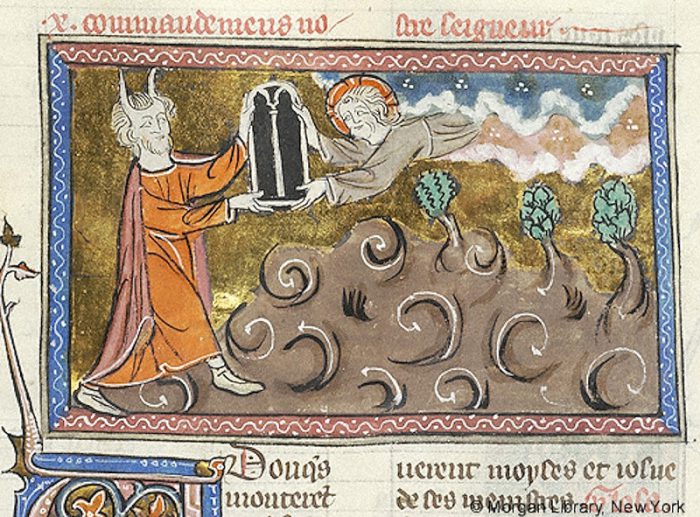 x. commandemens no stre seigneur
Donqs uerent moyses et iosue
monterent de ses menistres Glose
© Morgan Library, New York